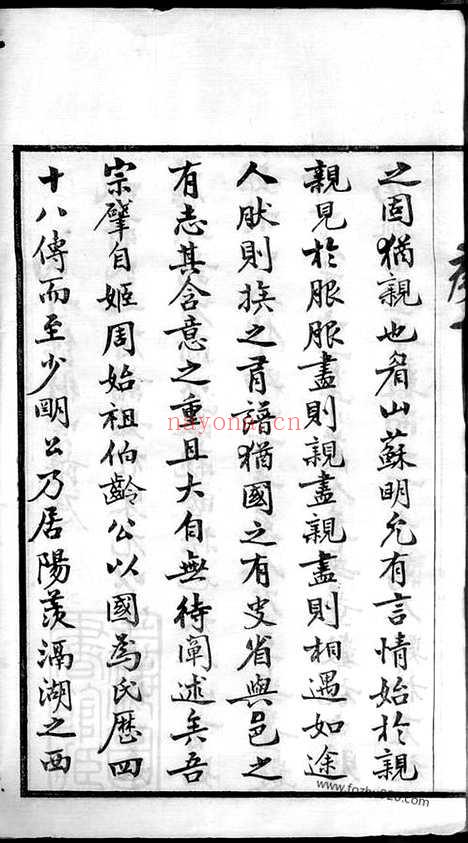 之固猶親也眉山蘇明允有言情始於親
親見於服服盡則親盡親盡則相遇如途
人肰則族之有譜猶國之有史省與邑之
有志其含意之重且大自無待闡述矣吾
宗肇自姬周始祖伯齡公以國爲氏歷四
十八傳而至少明公乃居陽羨滆湖之西
nayona.cn
www.fozhu920.com